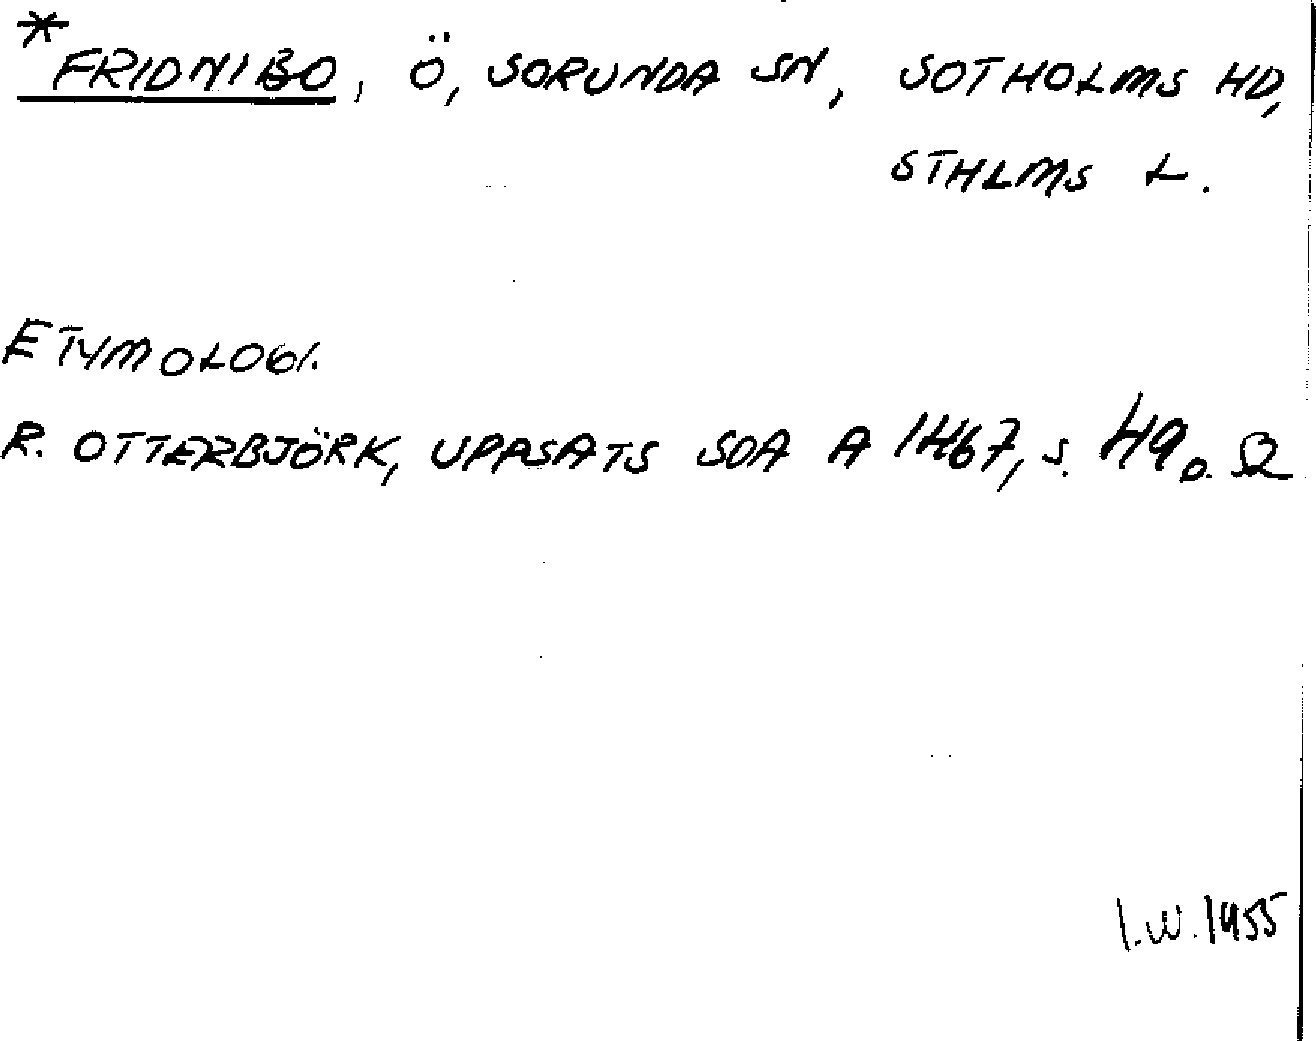 *FRIDNIBO, Ö, SORUNDA SN, SOTHOLMS HD,
STHLMS L.
ETYMOLOGI.
R. OTTERBJÖRK, UPPSATS SOA A 1467, s. 49 o.
I.W. 1955